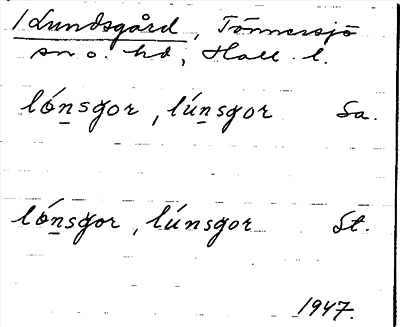 1 Lundsgård, Tönnersjö
sn o. hd, Hall. l.
lónsgor, lúnsgor Sa.
lónsgor, lúnsgor St.
1947.